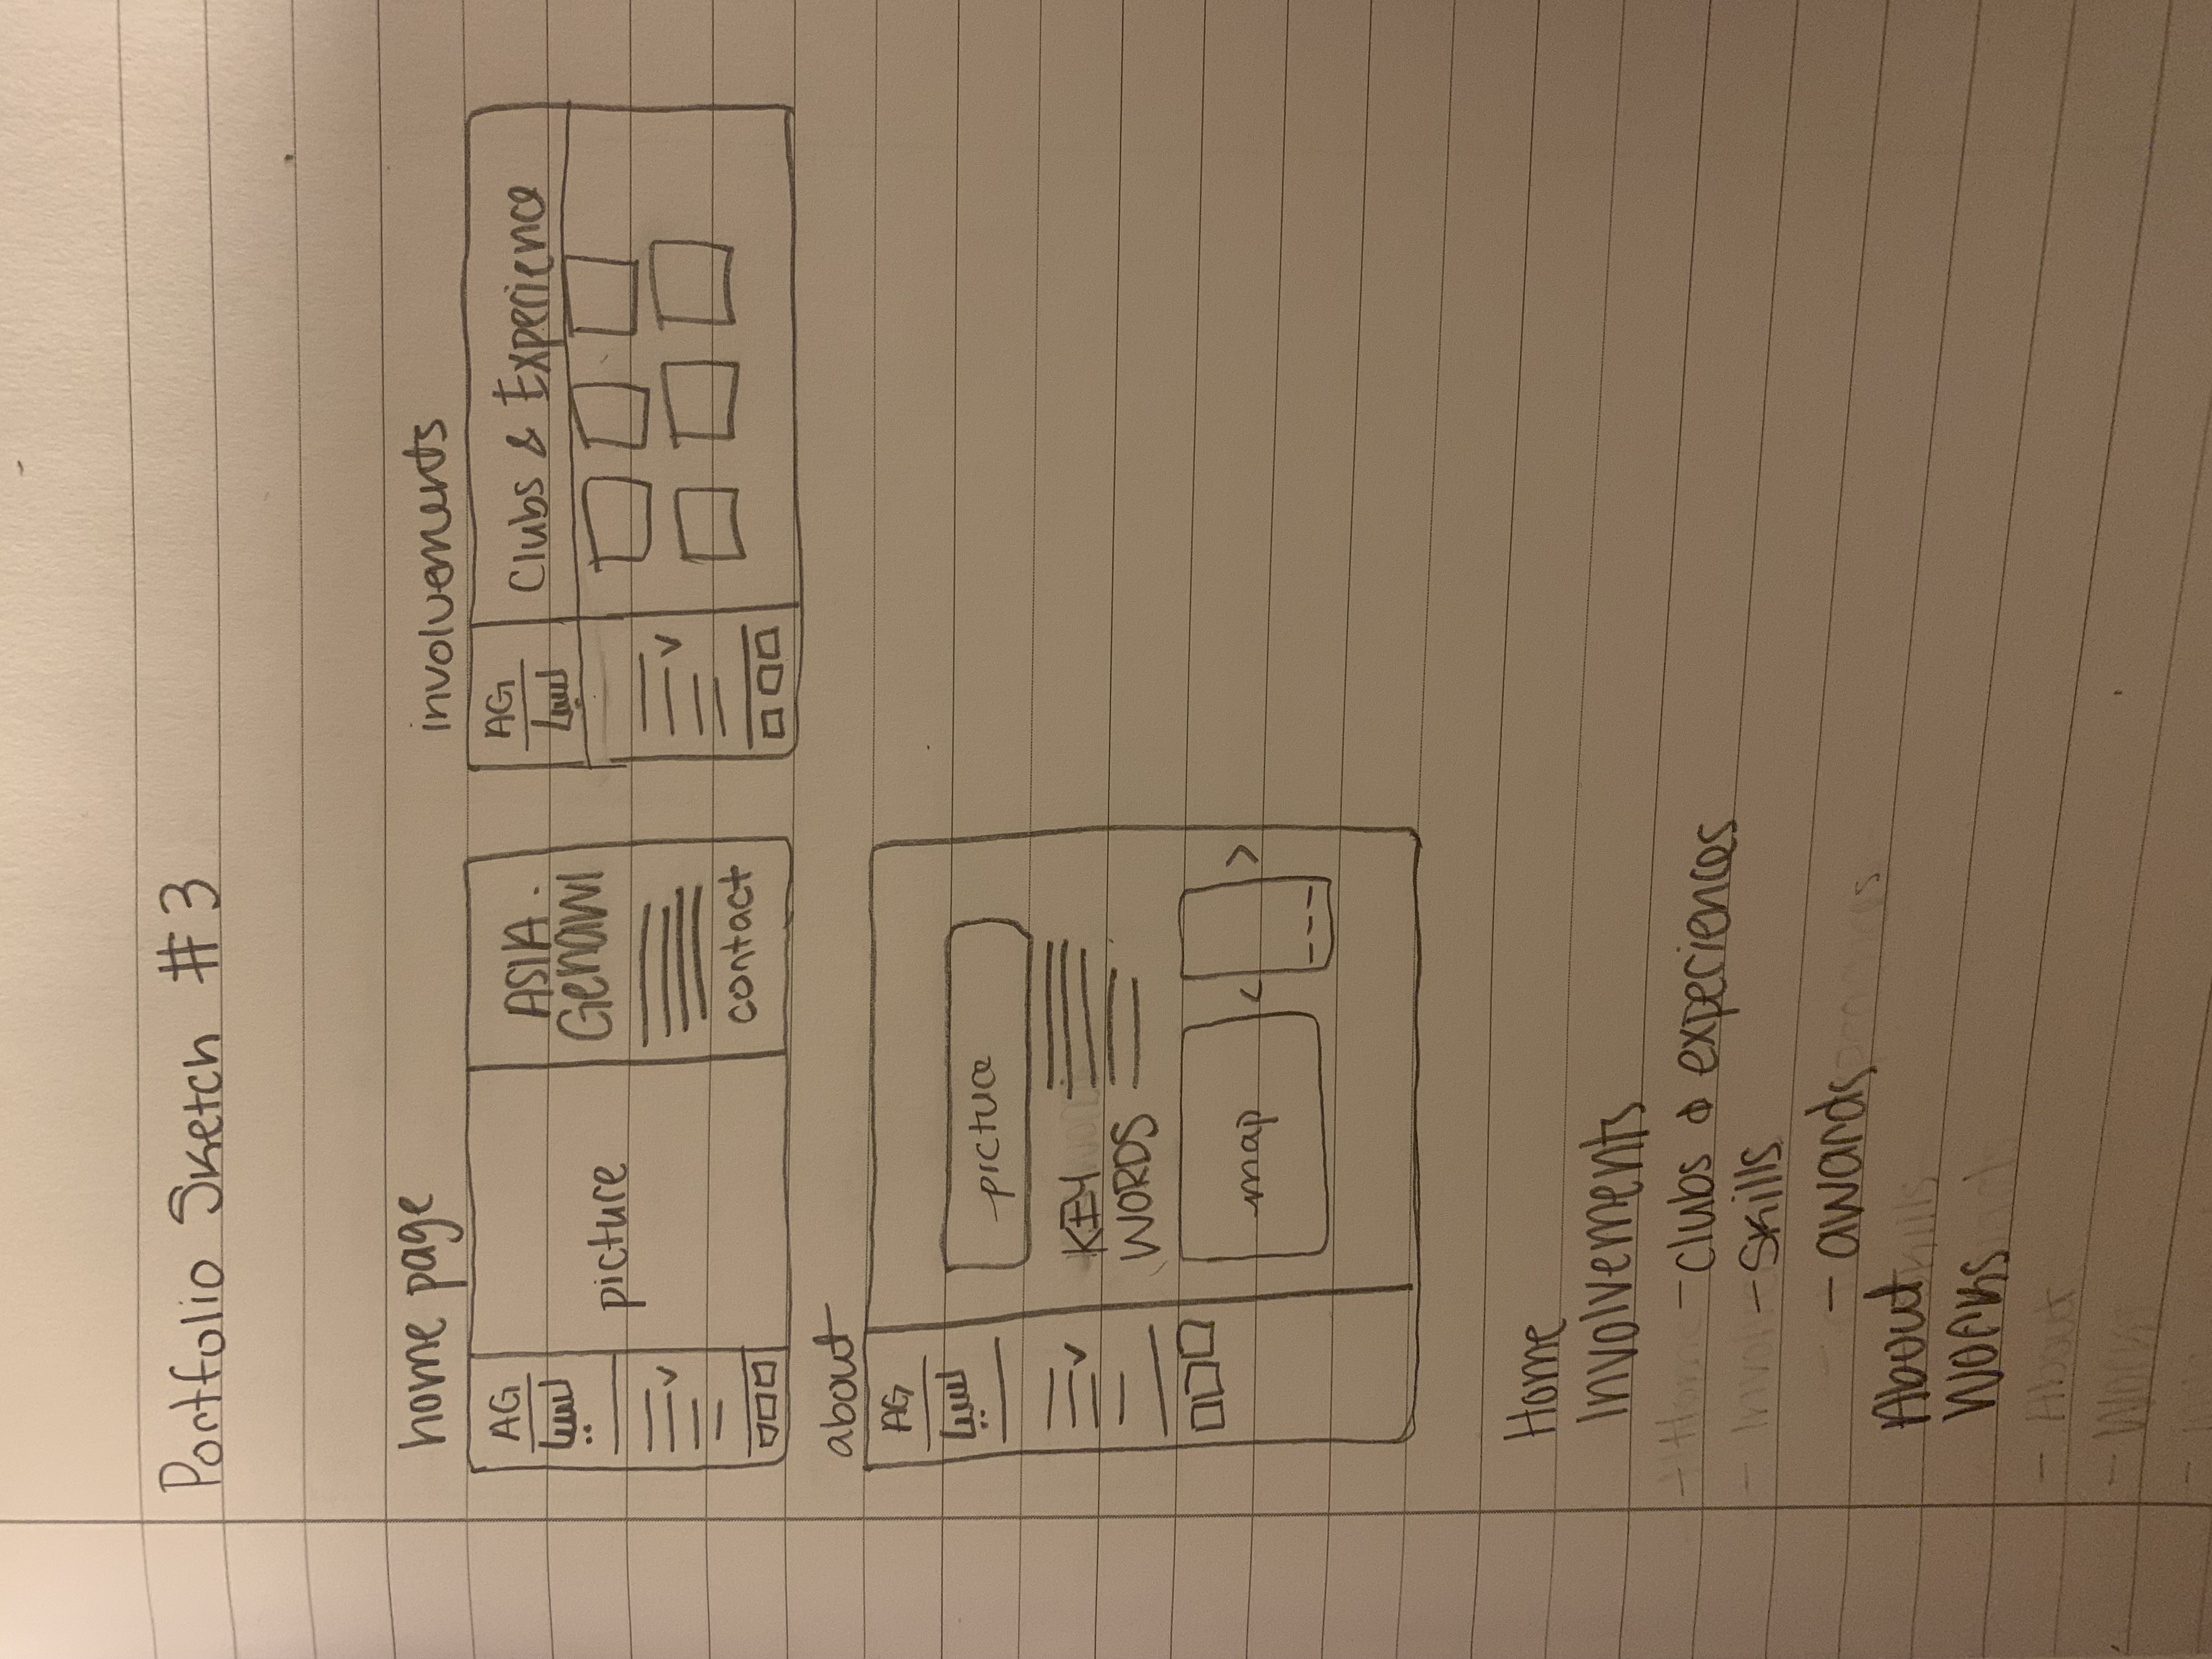 Portfolio Sketch #3
home page
AG
لسيا
picture
ASIA
Genawi
contact
involvements
AG
لسيا
Clubs & Experience
about
AG
لسيا
picture
KEY
WORDS
map
< >
Home
Involvements
- clubs & experiences
- skills
- awards
About
Works
- About